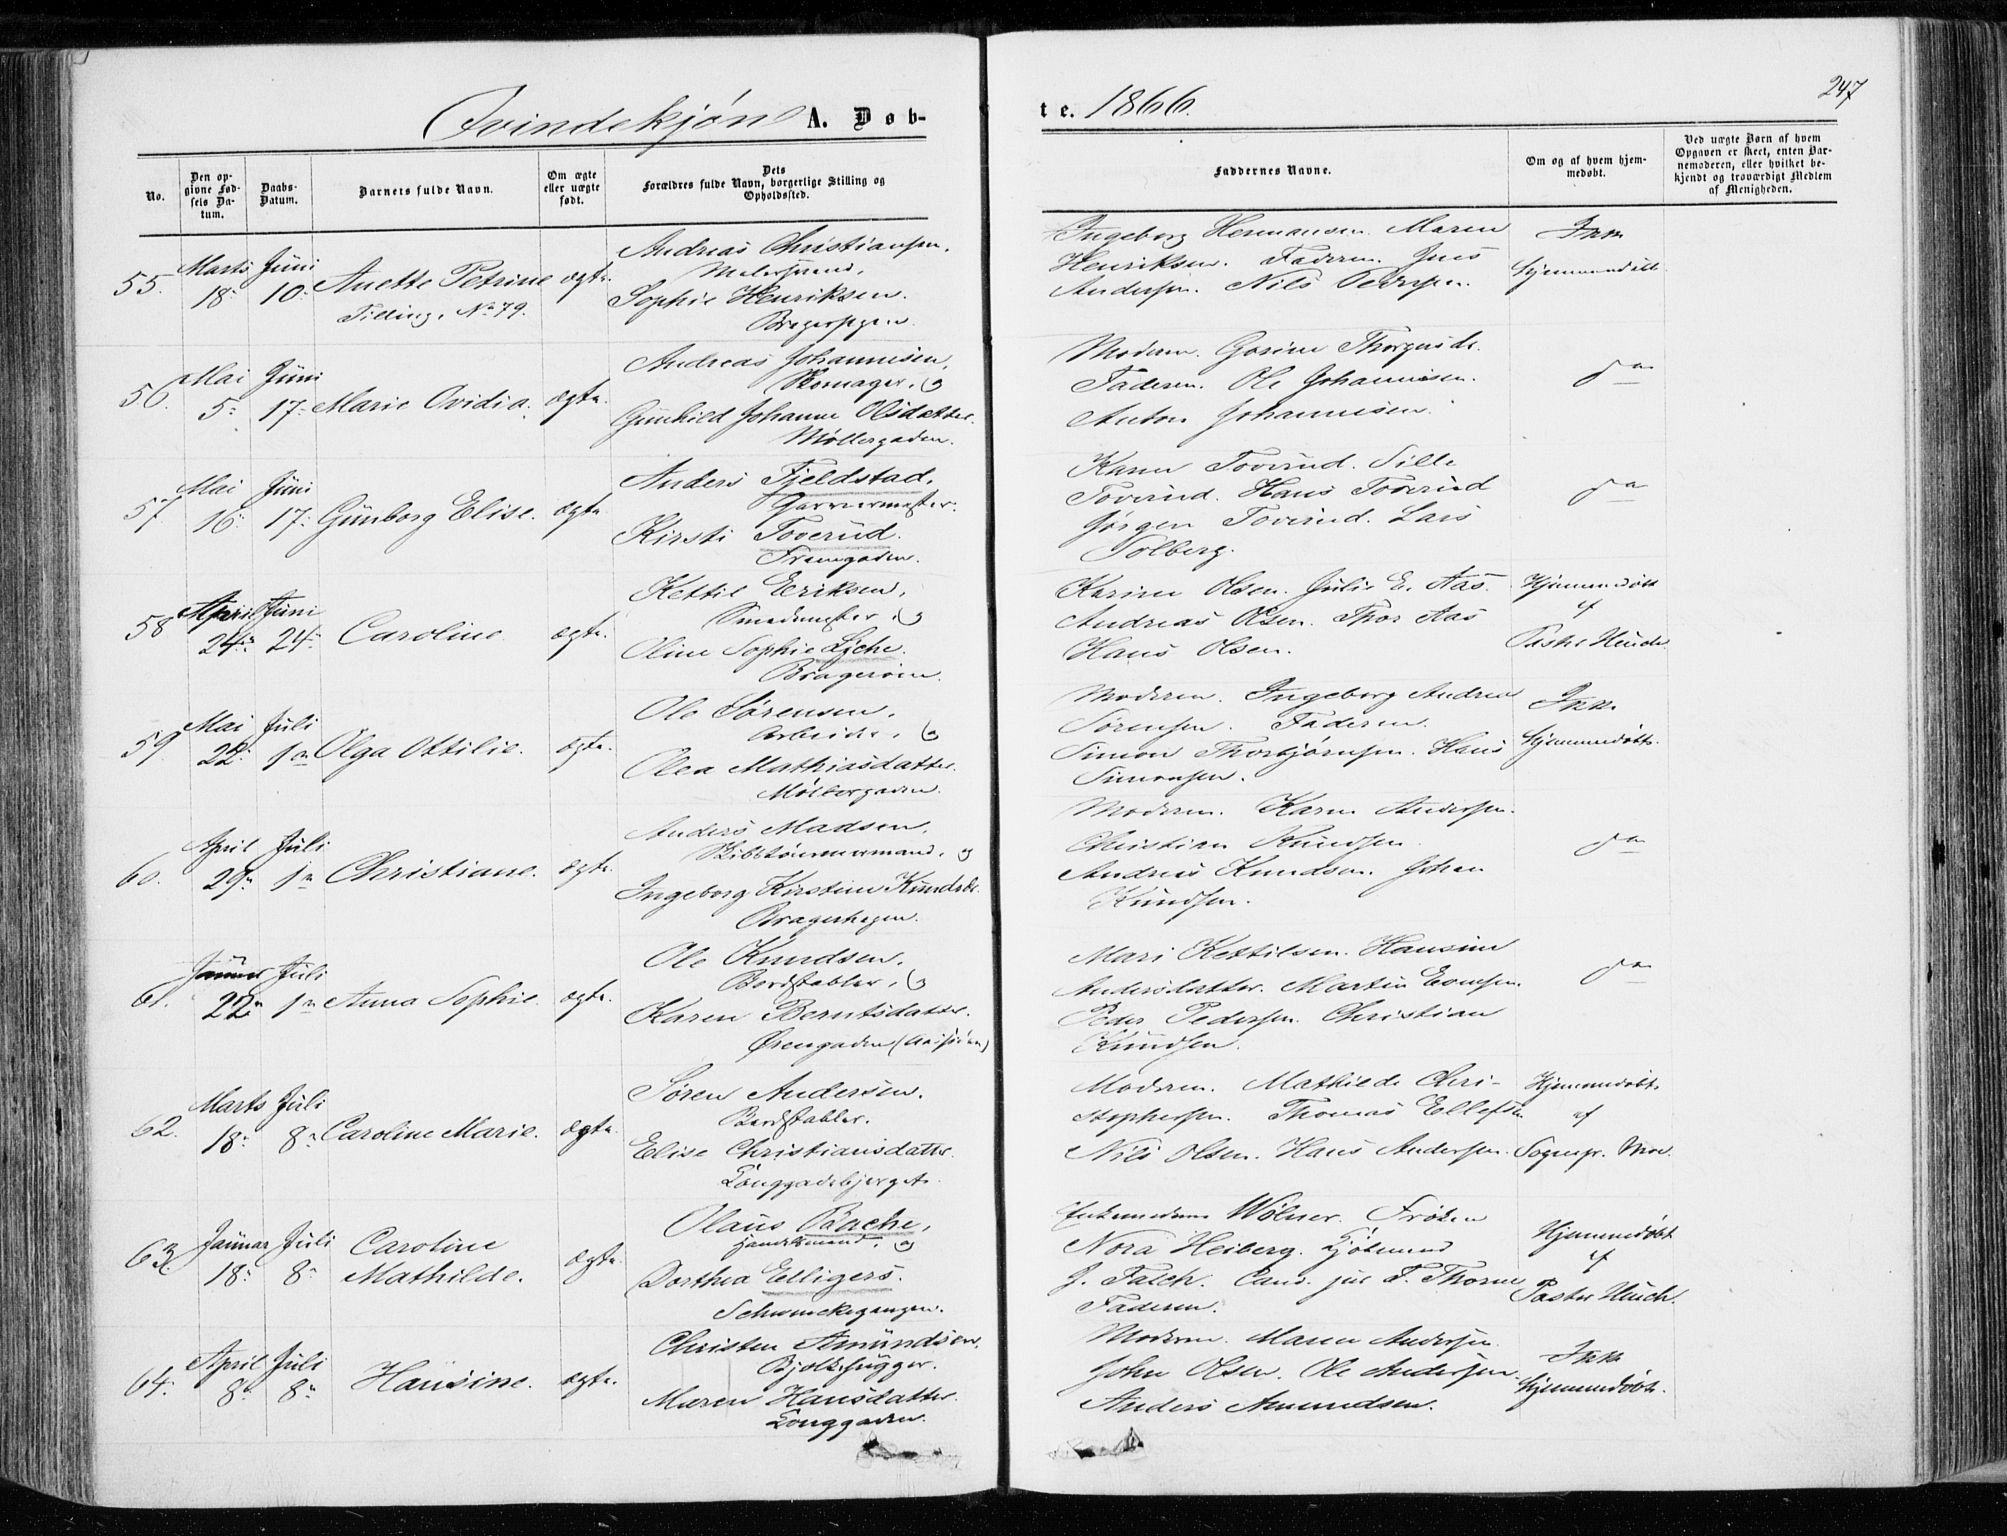 Qvindekjøn A. Døb-
te. 1866.
247
No.
Den op-
givne Fød-
sels Da-
tum.
Daabs-
Datum.
Barnets fulde Navn.
Om ægte
eller uægte
født.
Dets
Forældres fulde Navn, borgerlige Stilling og
Opholdssted.
Faddernes Navne.
Om og af hvem hjem-
medøbt.
Ved uægte Børn af hvem
Opgaven er skeet, enten Bar-
nemoderen, eller hvilket be-
kjendt og troværdigt Medlem
af Menigheden.
55. Marts 18 Juni 10 Anette Petrine ægte
Tilling. No 79.
Andreas Christiansen,
Sophie Henriksen.
Ingeborg Hermansen. Maren
Henriksen. Faderen. Jens
Andersen. Nils Pedersen.
Ikke
Hjemmedøbt
56. Mai 5 Juni 17 Marie Ovidia. ægte
Andreas Johannesen,
Skomager, og
Gunhild Johanne Olsdatter.
Møllergaden.
Moderen.
Faderen. Ole Johannesen.
Anton Johannesen.
do
57 Mai 16 Juni 17 Gunborg Elise. ægte
Anders Fjeldstad,
Garvermester.
Kirsti Toverud.
Karen Toverud. Sille
Toverud. Hans Toverud
Jørgen Toverud. Lars
Solberg.
do
58 April 24 Juni 24 Caroline ægte
Kettil Eriksen,
Smedmester, og
Oline Sophie Lyche.
Karine Olsen. Julie E. Aas.
Andreas Olsen. Thor Aas
Hans Olsen.
Hjemmedøbt
af
59 Mai 22 Juli 1 Olga Ottilie. ægte
Ole Sørensen,
Arbeider, og
Olea Mathiasdatter.
Møllergaden.
Moderen. Ingeborg Andrea
Sørensen. Faderen.
Simon Thorbjørnsen. Hans
Simonsen.
Ikke
Hjemmedøbt.
60. April 29 Juli 1 Christiane. ægte
Anders Madsen,
Skibstømmermand, og
Ingeborg Kirstine Knudsdtr.
Bragerhagen.
Moderen. Karen Andersen.
Christian Knudsen.
Andreas Knudsen. Johan
Knudsen.
do
61. Januar 22 Juli 1 Anna Sophie. ægte
Ole Knudsen,
Bordstabler, og
Karen Berntsdatter.
Ørengaden
Mari Kettilsen. Hansine
Andersdatter. Martin Evensen.
Peder Pedersen. Christian
Knudsen.
do
62. Marts 18 Juli 8 Caroline Marie. ægte
Søren Andersen.
Bordstabler.
Elise Christiansdatter.
Langgadebjerget.
Moderen. Mathilde Chri-
stophersen. Thomas Ellefsen
Nils Olsen. Hans Andersen.
Hjemmedøbt
af
Sognepr. Moe.
63 Januar 18 Juli 8 Caroline
Mathilde. ægte
Olaus Bache,
Handelsmand, og
Dorthea Elligers.
Schwenckegangen.
Wølner. Frøken
Nora Heiberg. Kjøbmand
J. Falch. Cand. jur F. Thorne
Faderen.
Hjemmedøbt
af
Pastor Huich.
64. April 8 Juli 8 Hansine. ægte
Christen Amundsen,
Bjelkehugger.
Maren Hansdatter.
Langgaden.
Moderen. Maren Andersen
John Olsen. Ole Andersen.
Anders Amundsen.
Ikke
Hjemmedøbt.